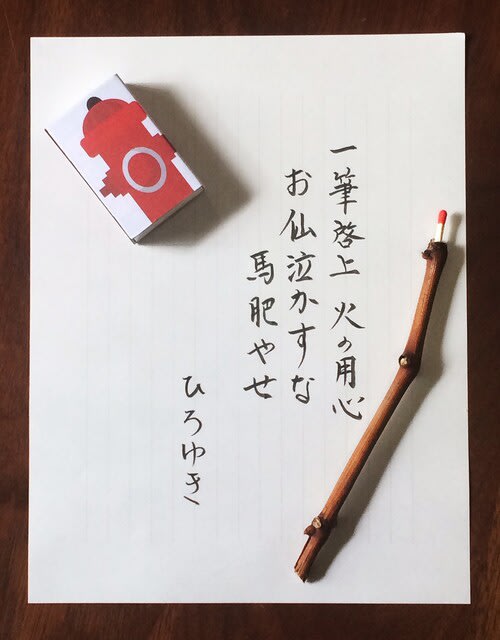 一筆啓上 火の用心
お仙泣かすな
馬肥やせ
ひろゆき